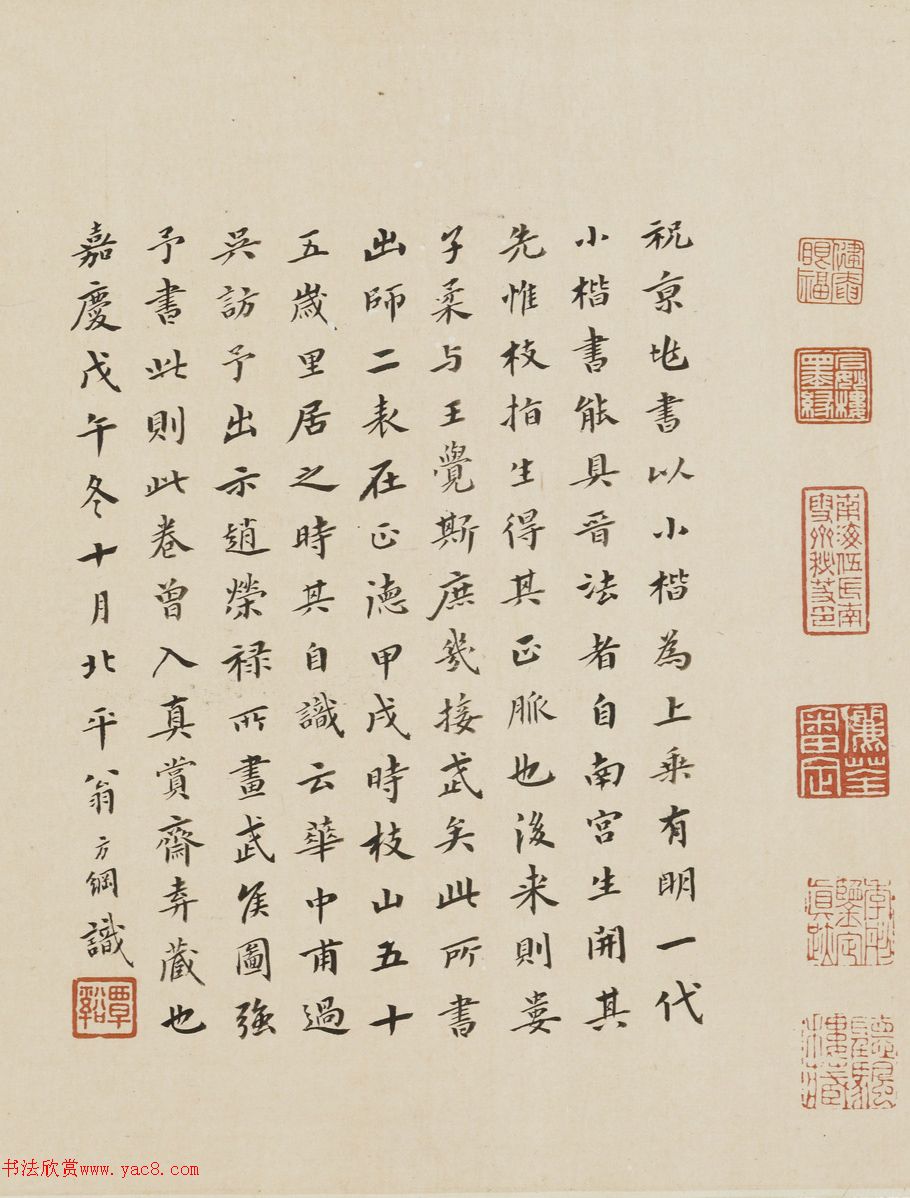 儷荃審定
祝京兆書以小楷為上乘有明一代
小楷書能具晉法者自南宮生開其
先惟枝指生得其正脈也後来則婁
子柔与王覺斯庶幾接武矣此所書
出師二表在正德甲戌時枝山五十
五歲里居之時其自識云華中甫過
吳訪予出示趙榮祿所畫武侯圖強
予書此則此卷曾入真賞齋弆藏也
嘉慶戊午冬十月北平翁方綱識
覃谿
书法欣赏www.yac8.com